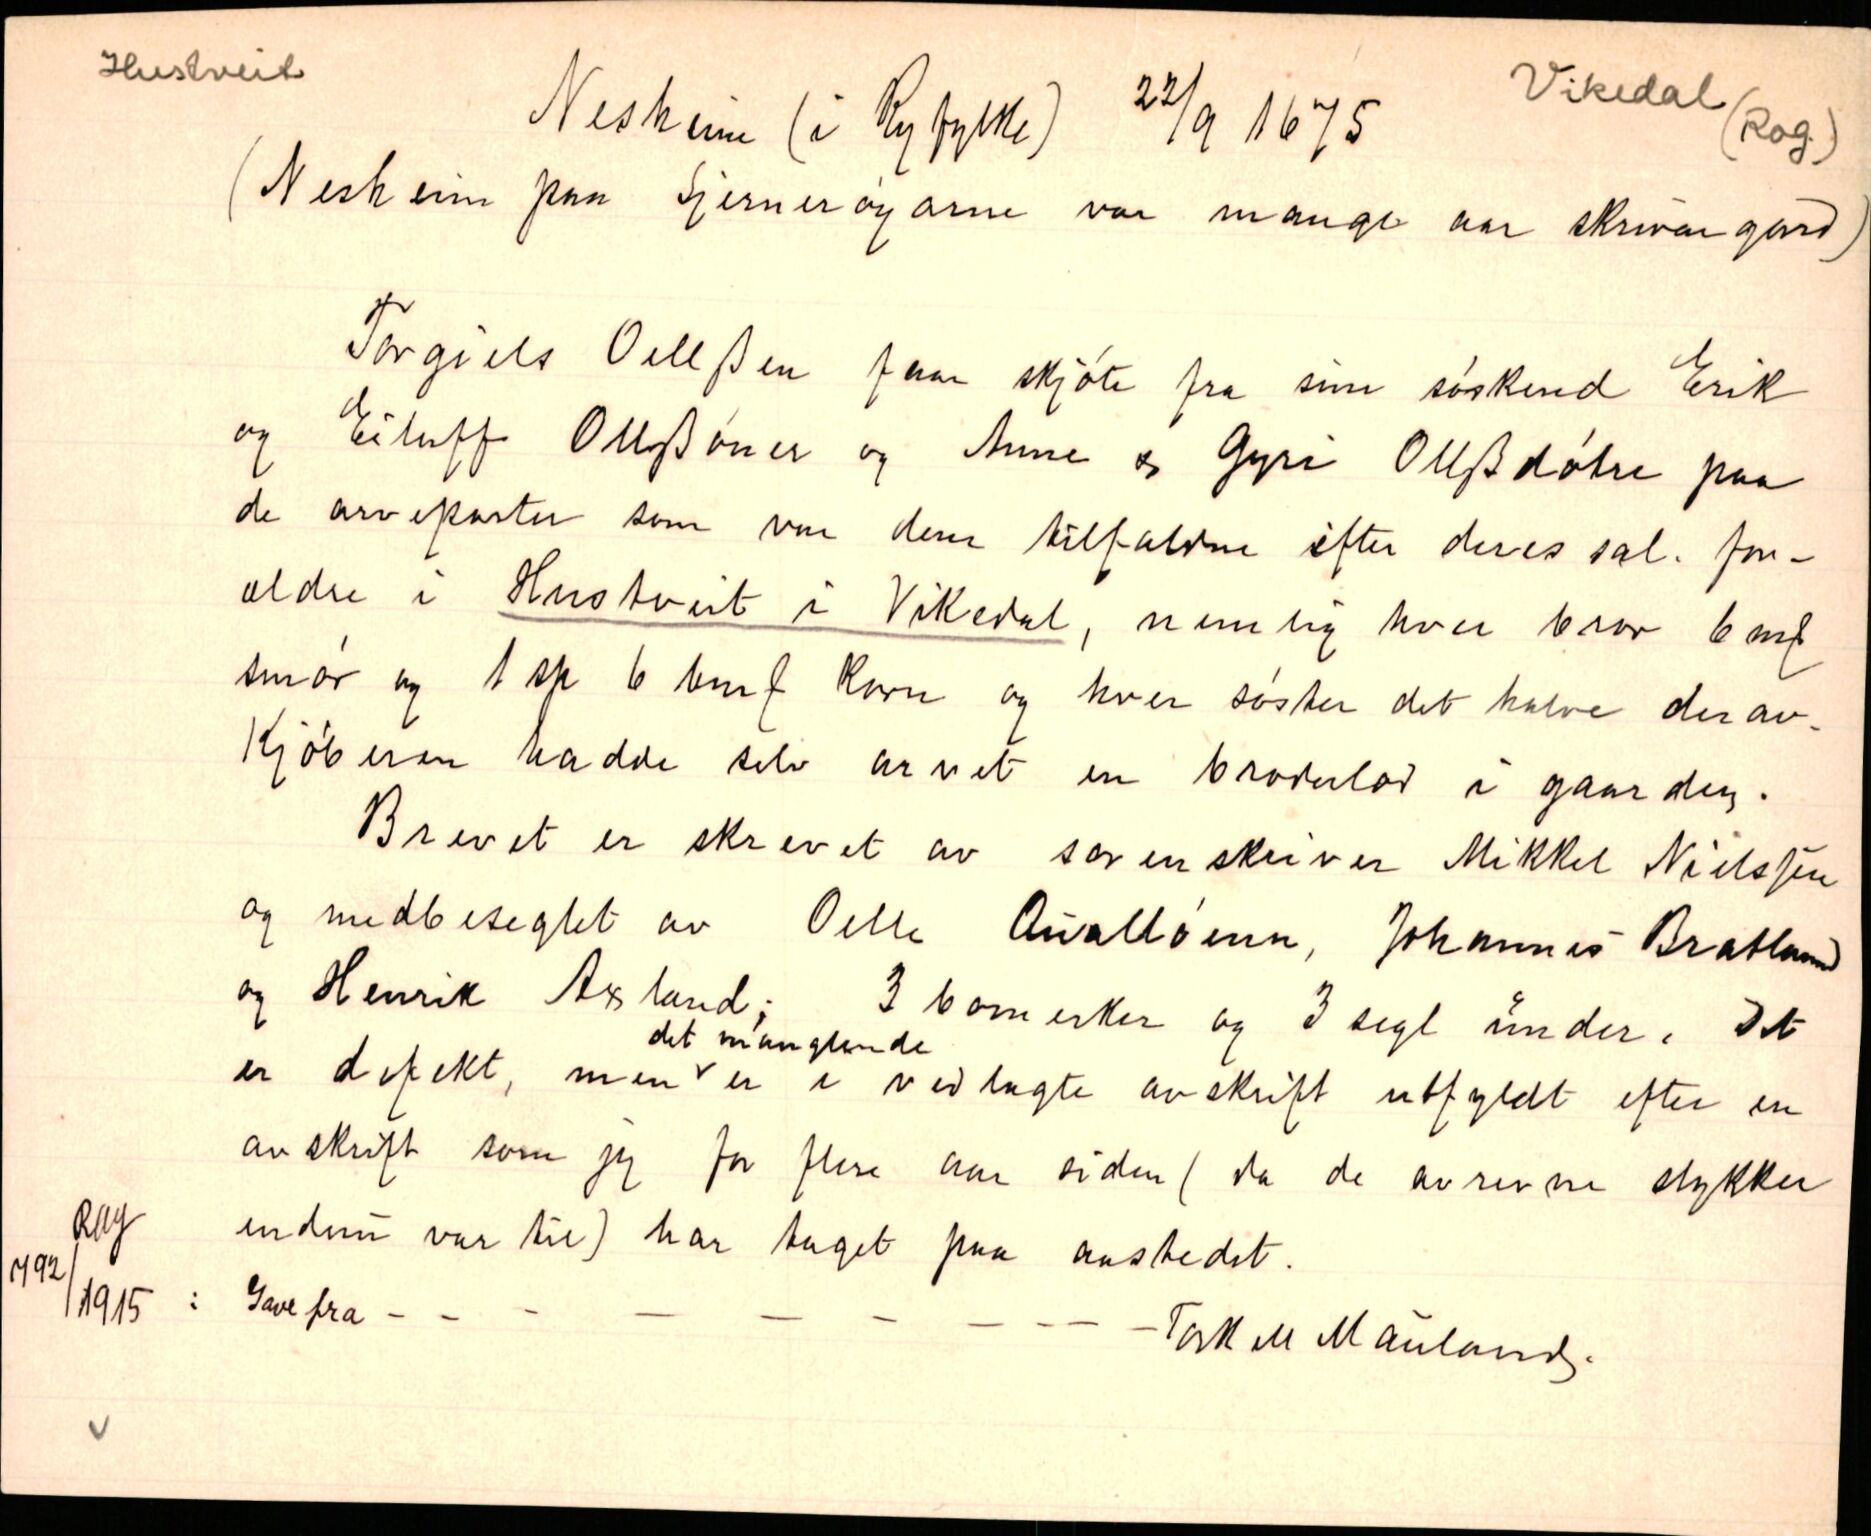 Hustveit
Vikedal
(Rog.)
Nesheim (i Ryfylke) 22/9 1675
(Nesheim paa Sjernerøyarne var mange aar skrivargard)
Torgiels Oellßen faar skjóte fra sine sóskend Erik
og Eiluff Ollßóner og Anne & Gyri Ollßdótre paa
de arveparter som var dem tilfaldne efter deres sal. for-
ældre i Hustveit i Vikedal, nemlig hver bror 6 mk
smór og 1 sp 6 bmk korn og hver sóster det halve derav.
Kjóberen hadde selv arvet en broderlod i gaarden.
Brevet er skrevet av sorenskriver Mikkel Nielsen
og medbeseglet av Oelle Quallóenn, Johannes Bratland
og Henrik Axland; 3 bomerker og 3 segl under. Det
det manglende
er defekt, men v er i vedlagte avskrift utfyldt efter en
avskrift som jeg for flere aar siden (da de avrevne stykker
endnu var til) har taget paa aastedet.
Rog
792/1915 : Gave fra - - - - - - - - - - Torkell Mauland.
v